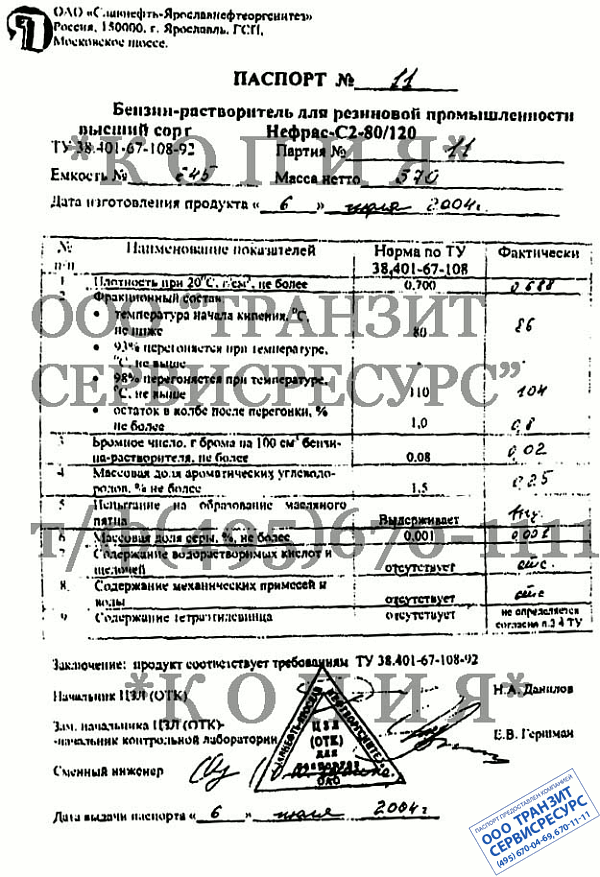 ОАО «Славнефть-Ярославнефтеоргсинтез»
Россия, 150000, г. Ярославль, ГСП,
Московское шоссе.
ПАСПОРТ № 11
Бензин-растворитель для резиновой промышленности
высший сорт Нефрас-С2-80/120
ТУ 38.401-67-108-92 Партия № 11
*КОПИЯ*
Емкость № 245 Масса нетто 570
Дата изготовления продукта « 6 » июля 2004г.
№ п-п Наименование показателей Норма по ТУ 38.401-67-108 Фактически
1 Плотность при 20°С, г/см³, не более 0,700 0,688
2 Фракционный состав
ООО “ТРАНЗИТ
• температура начала кипения, °С,
не ниже 80 86
• 93% перегоняется при температуре,
°С, не выше - -
СЕРВИСРЕСУРС”
• 98% перегоняется при температуре,
°С, не выше 110 104
• остаток в колбе после перегонки, %
не более 1,0 0,8
3 Бромное число, г брома на 100 см³ бензи-
на-растворителя, не более 0.08 0,02
4 Массовая доля ароматических углеводо-
родов, % не более 1,5 0,25
5 Испытание на образование масляного
пятна Выдерживает
т/ф(495)670-1111
6 Массовая доля серы, %, не более 0,001
7 Содержание водорастворимых кислот и
щелочей отсутствует отс.
8. Содержание механических примесей и
воды отсутствует отс
9 Содержание тетраэтилсвинца отсутствует не определяется
согласно п.3.4 ТУ
Заключение: продукт соответствует требованиям ТУ 38.401-67-108-92
*КОПИЯ*
Начальник ЦЗЛ (ОТК) Н.А. Данилов
Зам. начальника ЦЗЛ (ОТК)-
-начальник контрольной лаборатории Е.В. Гершман
Сменный инженер
ЦЗЛ
(ОТК)
для
паспортов
ОАО
Дата выдачи паспорта « 6 » июля 2004г
ПАСПОРТ ПРЕДОСТАВЛЕН КОМПАНИЕЙ
ООО ТРАНЗИТ
СЕРВИСРЕСУРС
(495) 670-04-69, 670-11-11